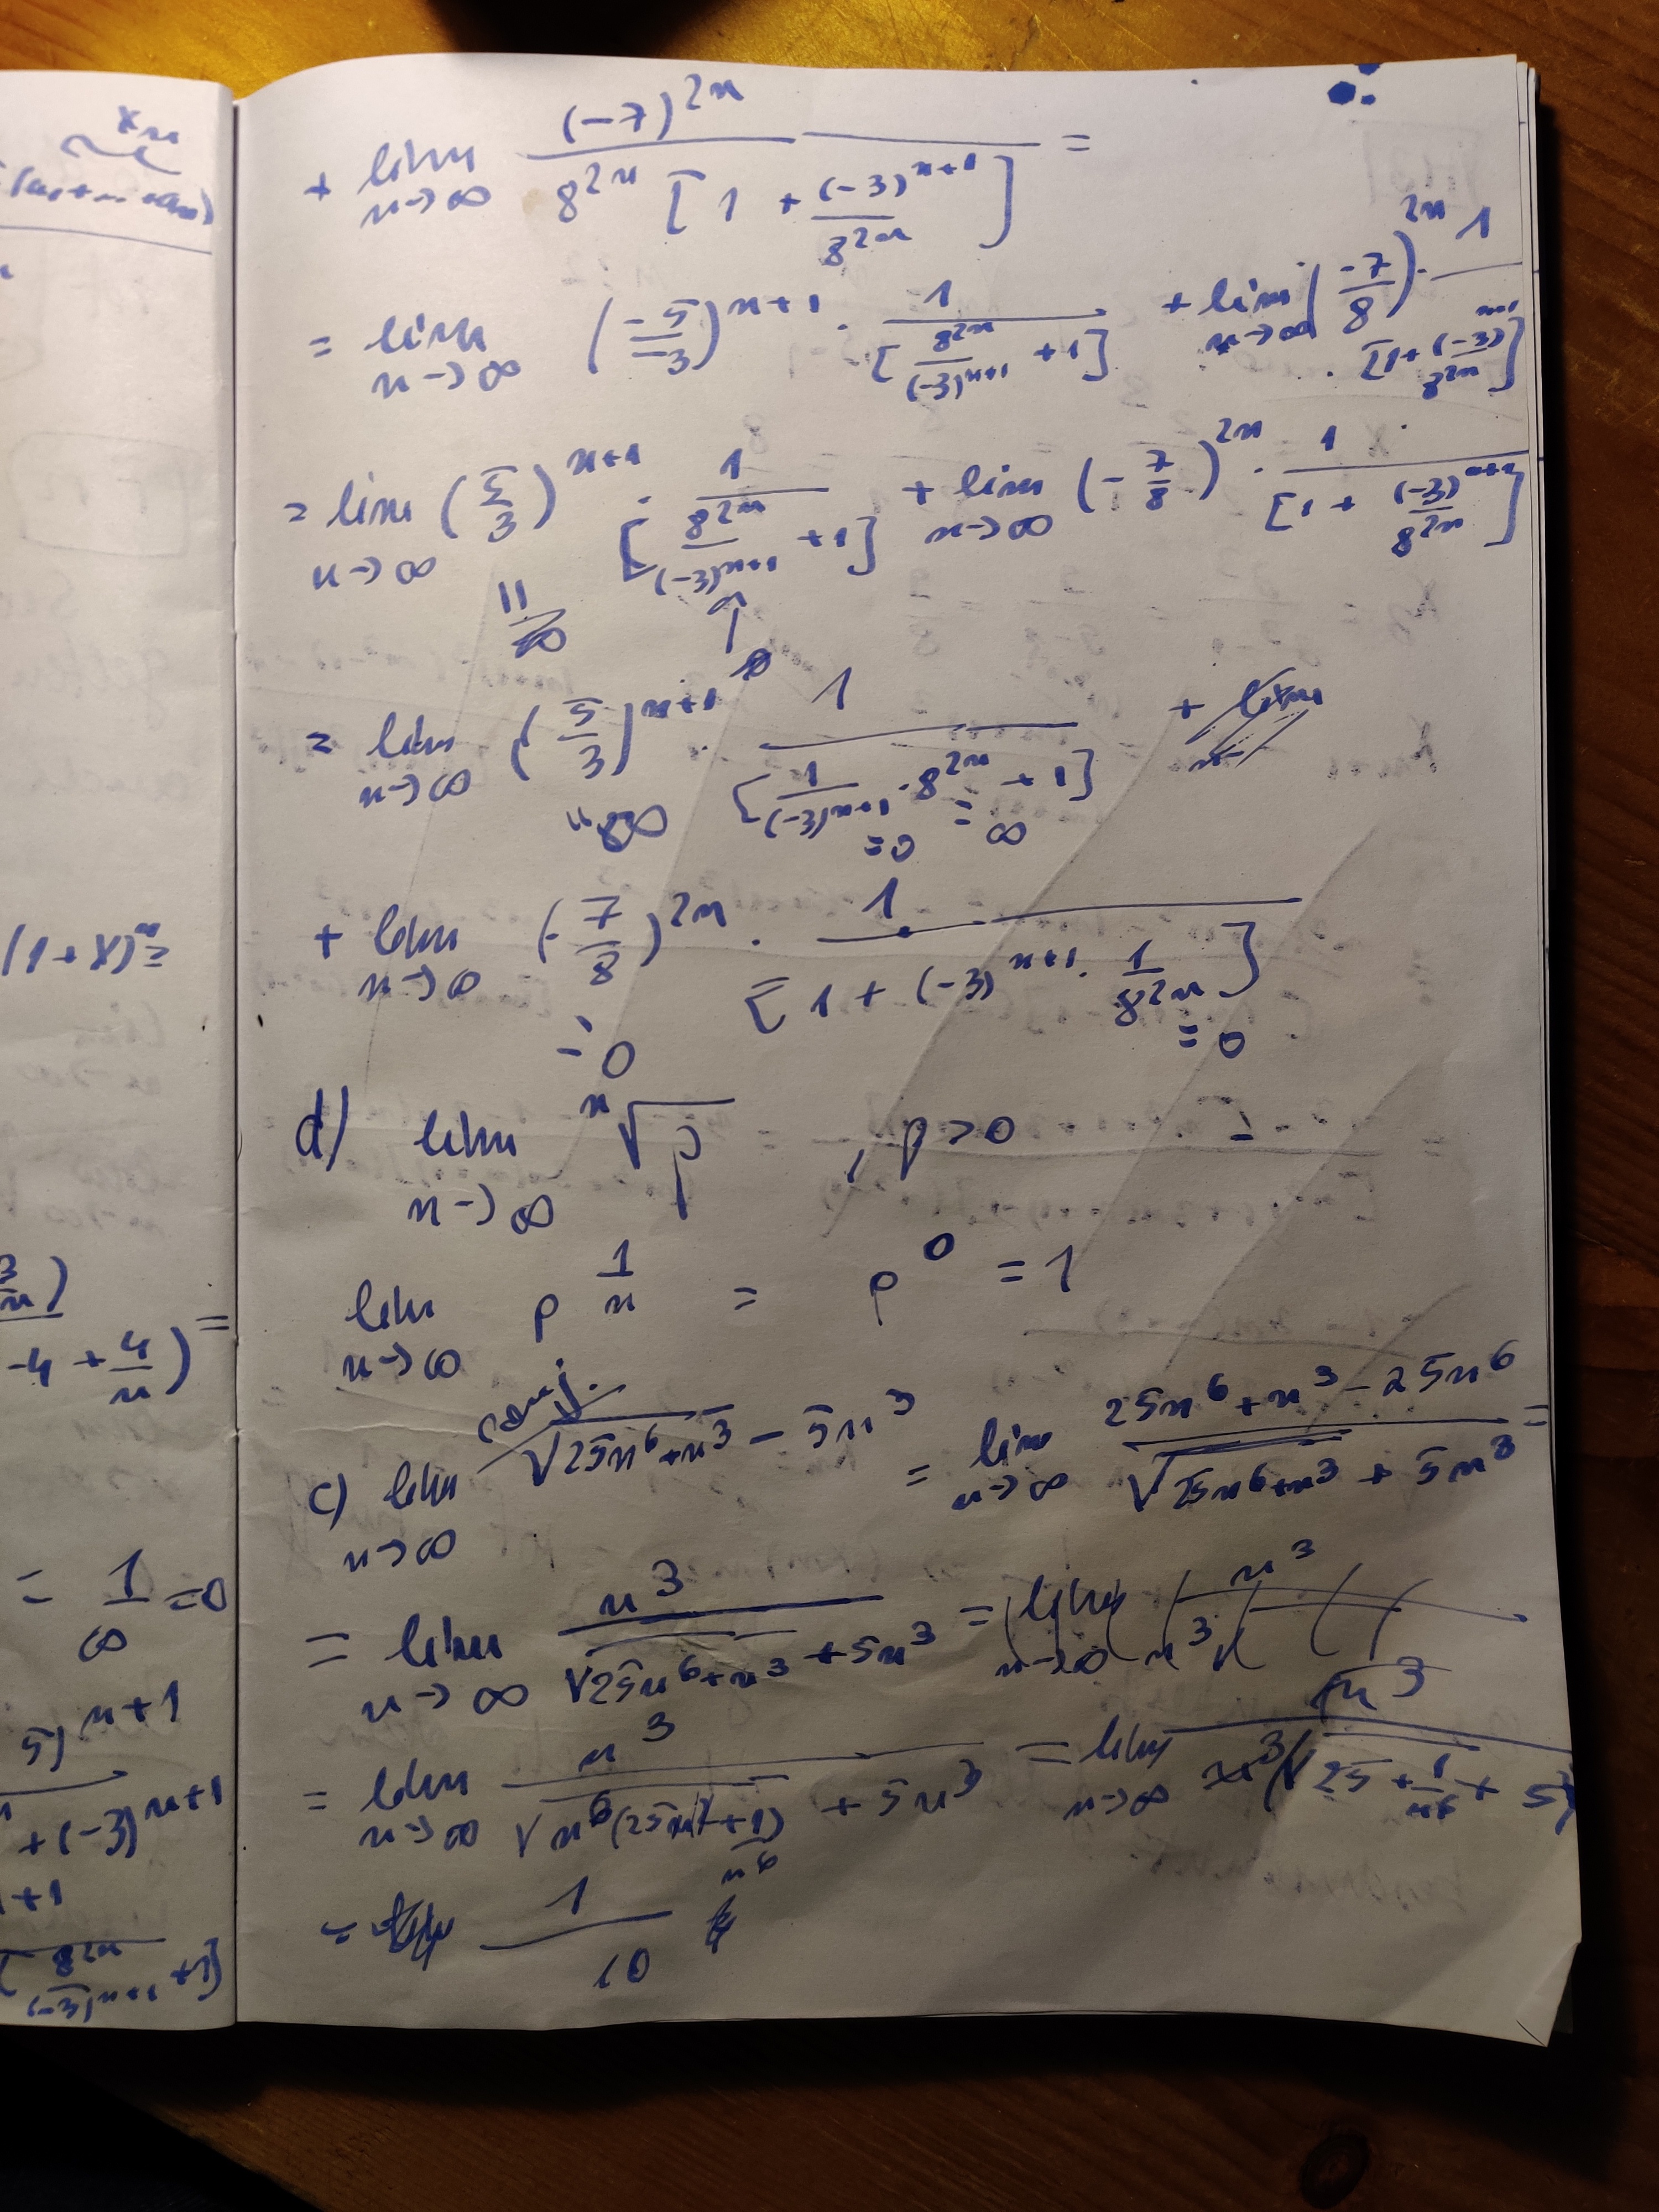 xn
(a1+...+an)
(1+x)^n ≥
3/n)
-4 + 4/n) =
= 1/∞ = 0
5)^(n+1)
+ (-3)^(n+1)
+1
[8^(2n)/(-3)^(n+1) + 1]
+ lim n→∞ (-7)^(2n) / 8^(2n) [1 + (-3)^(n+1)/8^(2n)] =
= lim n→∞ (-5/-3)^(n+1) · 1/[8^(2n)/(-3)^(n+1) + 1] + lim n→∞ (-7/8)^(2n) · 1/[1 + (-3)^(n+1)/8^(2n)]
= lim n→∞ (5/3)^(n+1) · 1/[8^(2n)/(-3)^(n+1) + 1] + lim n→∞ (-7/8)^(2n) · 1/[1 + (-3)^(n+1)/8^(2n)]
= lim n→∞ (5/3)^(n+1) · 1/[1/(-3)^(n+1) · 8^(2n) + 1] +
"∞ =0 =∞
+ lim n→∞ (-7/8)^(2n) · 1/[1 + (-3)^(n+1) · 1/8^(2n)]
=0 =0
d) lim n→∞ ⁿ√p , p>0
lim n→∞ p^(1/n) = p^0 = 1
conj.
c) lim n→∞ √(25n^6+n^3) - 5n^3 = lim n→∞ (25n^6+n^3-25n^6)/(√(25n^6+n^3) + 5n^3) =
= lim n→∞ n^3/(√(25n^6+n^3) + 5n^3) =
= lim n→∞ n^3/(√(n^6(25+1/n^6)) + 5n^3) = lim n→∞ n^3/(n^3(√(25+1/n^6) + 5))
= 1/10